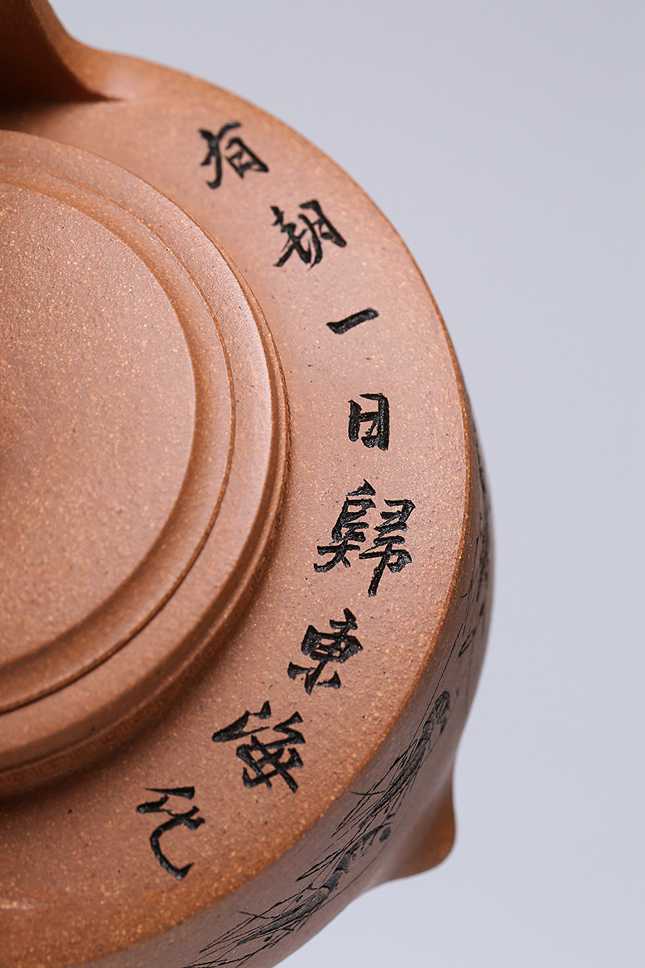 有朝一日歸東海化